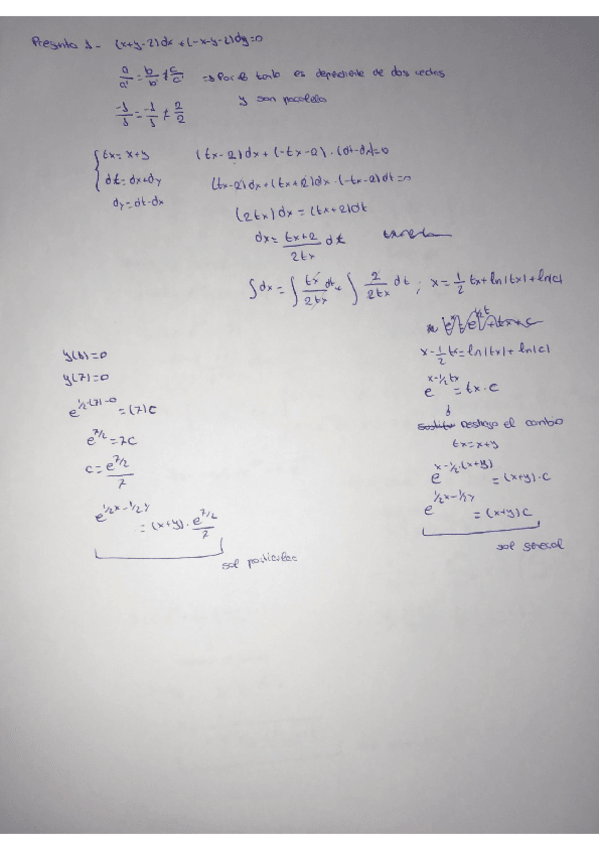 Pregunta 1- (x+y-2)dx+(-x-y-2)dy=0
a/a' = b/b' ≠ c/c' => Por lo tanto es dependiente de dos rectas
y son paralelas
-1/1 = -1/1 ≠ 2/2
tx = x+y
dt = dx+dy
dy = dt-dx
(tx-2)dx+(-tx-2)·(dt-dx)=0
(tx-2)dx+(tx+2)dx·(-tx-2)dt=0
(2tx)dx=(tx+2)dt
dx = tx+2/2tx dt
∫dx = ∫ tx/2tx dt + ∫ 2/2tx dt ; x = 1/2 tx + ln|tx| + ln|c|
x - 1/2 tx = ln|tx| + ln|c|
e^(x-1/2 tx) = tx·c
Deshago el cambio
tx = x+y
e^(x-1/2·(x+y)) = (x+y)·c
e^(1/2x-1/2y) = (x+y)c
sol general
y(7)=0
e^(1/2·(7)-0) = (7)c
e^(7/2) = 7c
c = e^(7/2)/7
e^(1/2x-1/2y) = (x+y)·e^(7/2)/7
sol particular